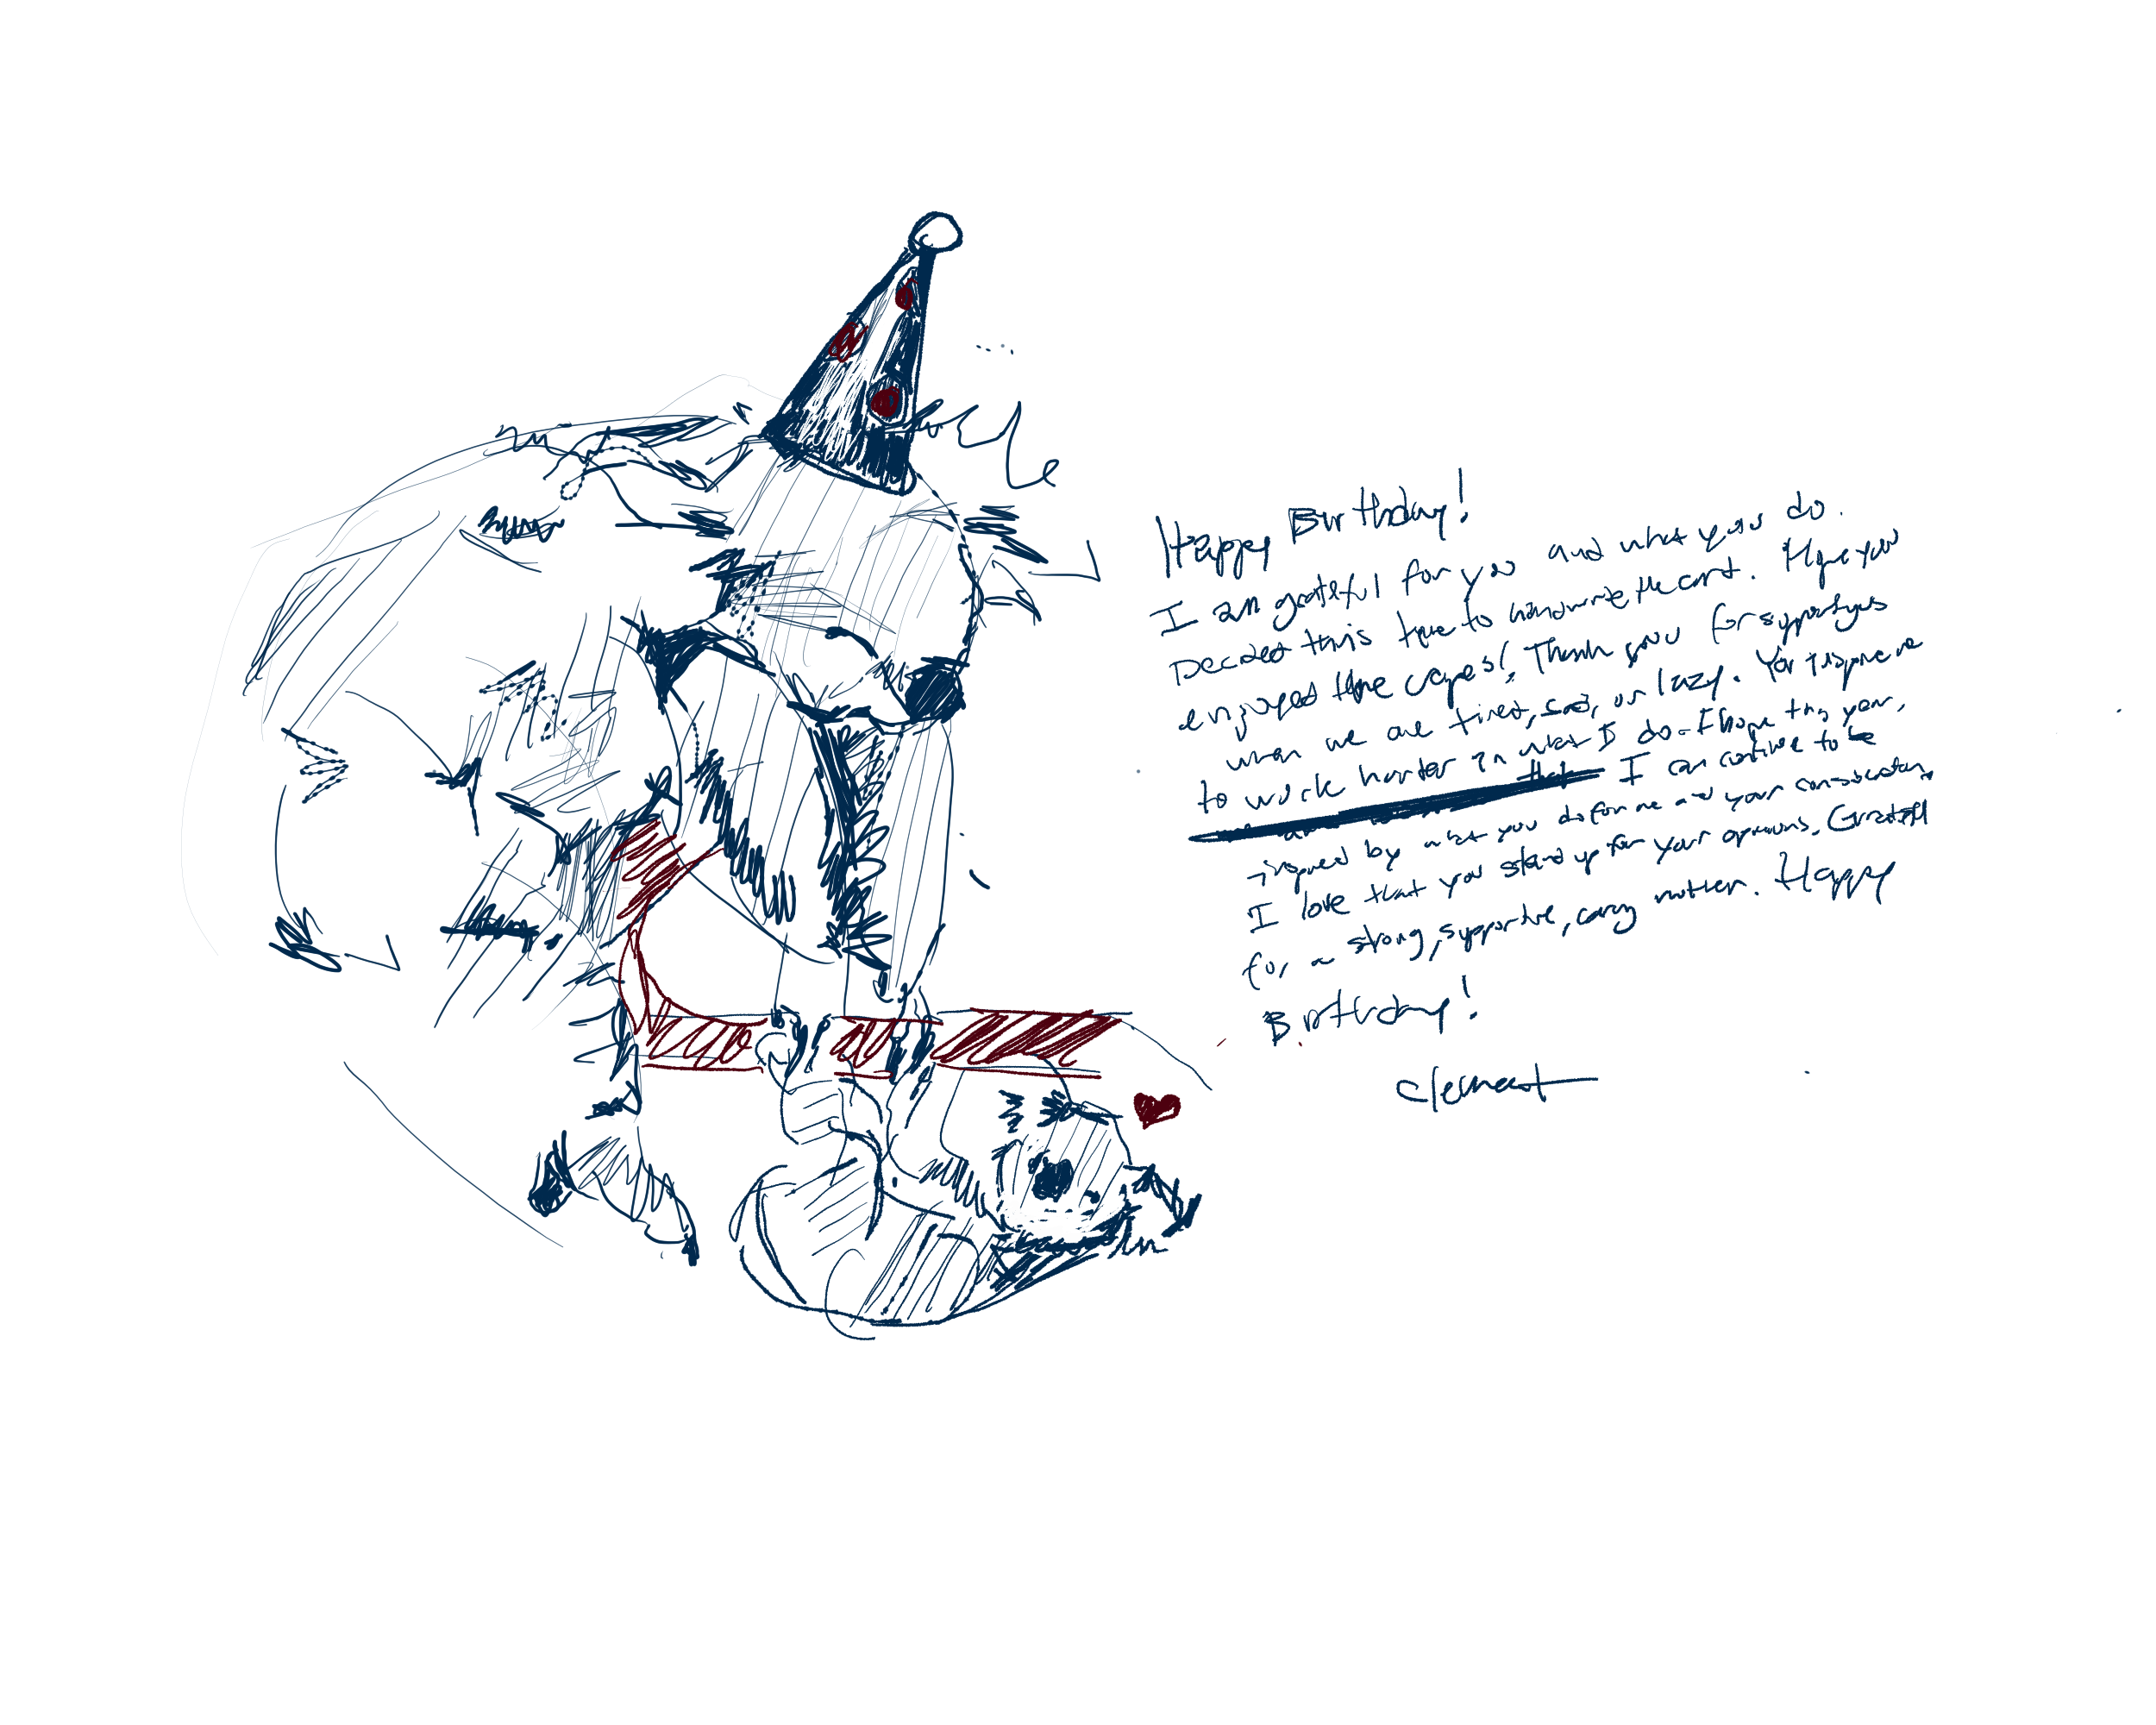 Happy Birthday!
I am grateful for you and what you do.
Decided this time to handwrite the card. Hope you
enjoyed the crepes! Thank you for supporting us
when we are tired, sad, or lazy. You inspire me
to work harder in what I do. I hope this year,
I can continue to be
inspired by what you do for me and your consideration
I love that you stand up for your opinions. Grateful
for a strong, supportive, caring mother. Happy
Birthday!
Clement